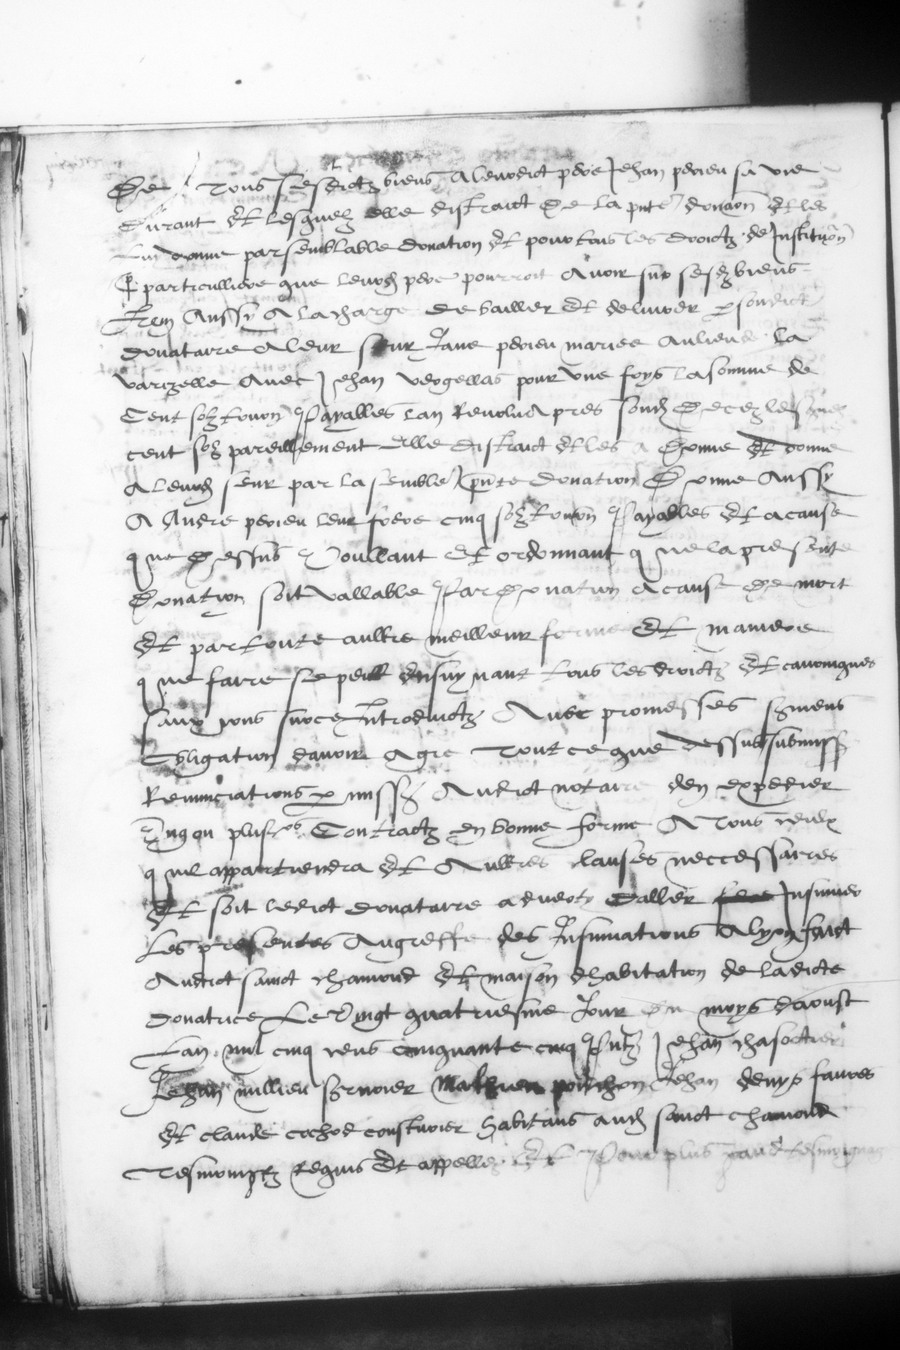 De tous sesdictz biens a leurdict pere Jehan perieu sa vie
durant et lesquelz elle distraict de la pnte donaon et les
luy donne par semblable donation et pour tous les droictz de Instituon
particulliere que leurd pere pourroit avoir sur sesd biens
Item Aussy A la charge de bailler et delivrer p son dict
donataire a leur seur Jane perieu mariee au lieu de la
varizelle avec Jehan vergellas pour une foys la somme de
Cent solz tourn payalles lan Revolu apres sond decez lesquelz
cent solz pareillement elle distraict et les a donne et donne
a leurd seur par la semble pnte donation Donne Aussy
A Andre perieu leur frere cinq solz tourn payables et a cause
que dessus Voullant et ordonnant que la presente
Donation soit vallable Par Donation a cause de mort
et par toute aultre meilleur forme et maniere
que faire se peult ensuyvant tous les droictz et canoniques
Avec promesses
Obligation davoir agre tout ce que dessus submiss
Renunciations p miss Audict notaire den expedier
Ung ou plusrs Contractz en bonne forme A tous ceulx
quil appartiendra et Aultres clauses neccessaires
et soit ledict donataire adverty daller Insinuer
Les presentes Au greffe des Insinuations A lyon faict
Audict sainct chamond et maison dhabitation de ladicte
donatrice Le Vingt quatriesme Jour du moys daoust
Lan mil cinq cens cinquante cinq Pntz Jehan
Jehan millieu Mathieu ponchon Jehan denys favres
et claude cochod cousturier habitans aud sainct chamond
Tesmoingtz Requis et appellez et Pour plus grand tesmognage